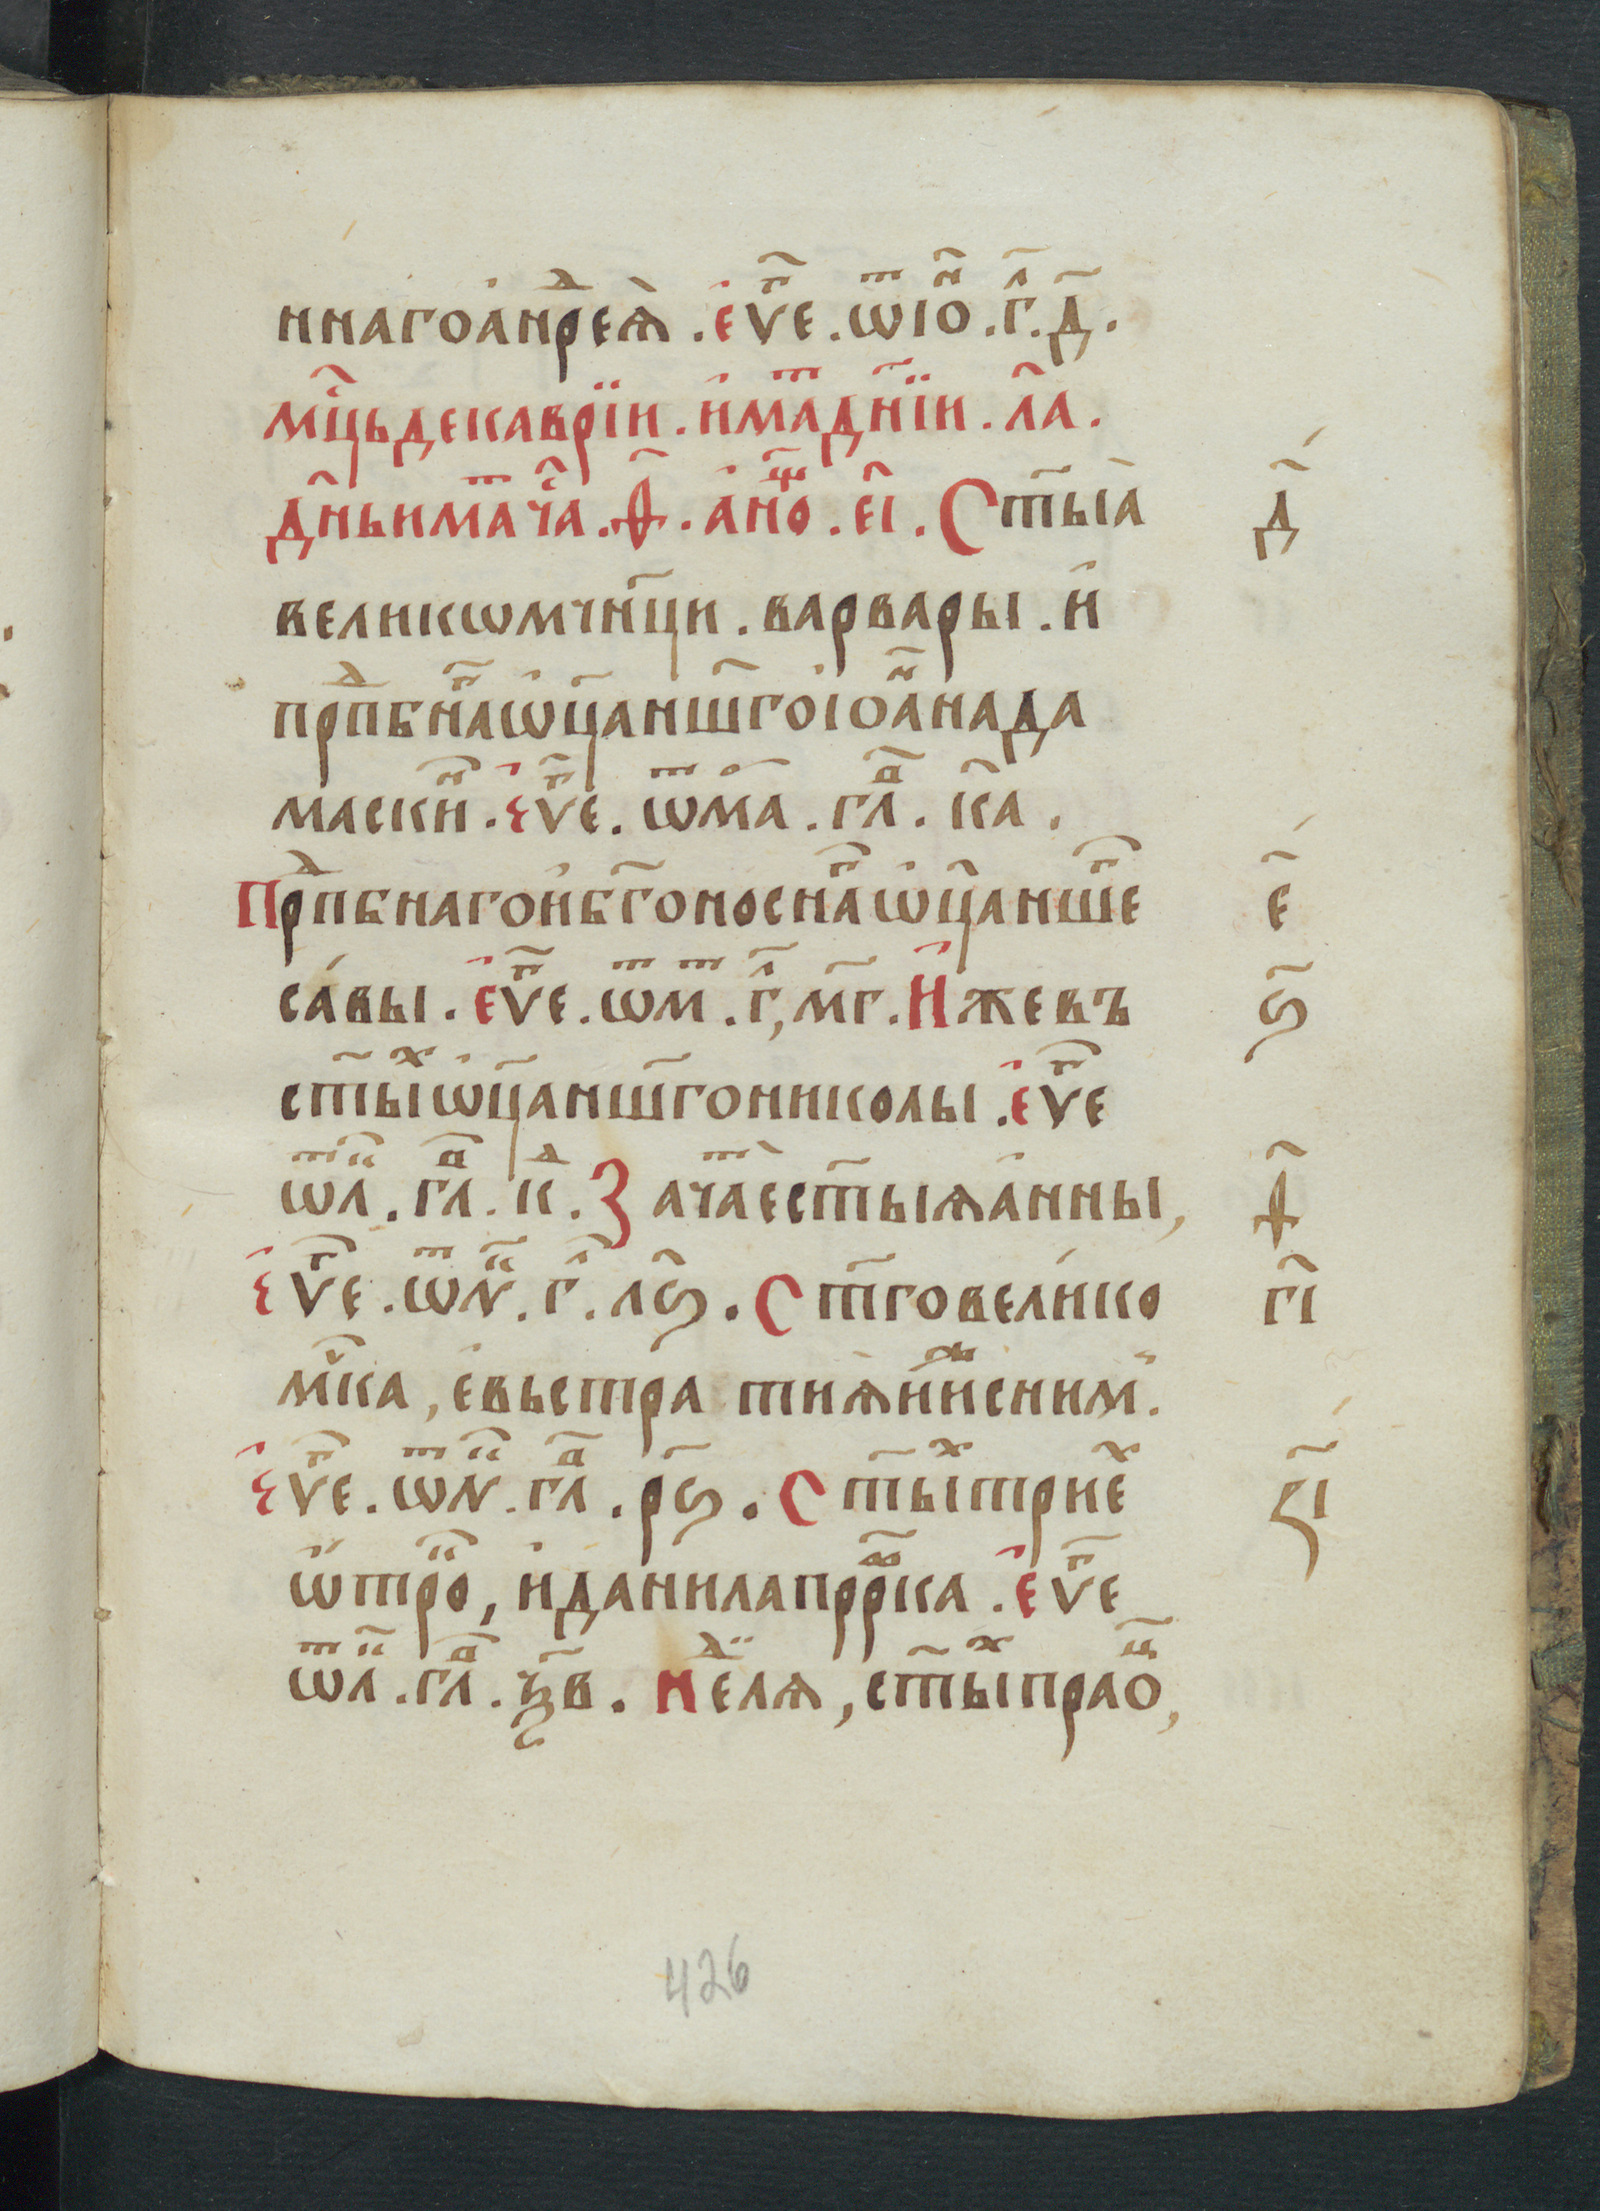 ннагоа҆нⷣреѧ̀ . є҆ѵⷢ҇е . ѿ і҆ѡⷩ҇ . гⷧ҇ . д҃ .
мⷭ҇цъ декаврїи . и҆ма́тъ дн҃їи . л҃а .
дн҃ь има́тъ чаⷭ҇ . ѳ҃ . а҆ нощⷪ҇ . є҃і . Ст҃ы́ѧ
д҃
великѡмч҃нци . варвары . и҆
прⷣпбнⷢ҇а ѡ҆ц҃а нш҃го і҆ѡаⷩ҇на да
маскиⷩ҇ . є҆ѵⷢ҇е . ѿ ма . глⷡ҇ . к҃а .
Прⷣпбнаго и҆ бг҃оноснⷢ҇а ѡ҆ц҃а нш҃еⷢ҇
е҃
са́вы . є҆ѵⷢ҇е . ѿ мⷮ . гⷧ҇ , м҃г . И҆же въ
ѕ҃
ст҃ыⷯ ѡ҆ц҃а нш҃го николы . є҆ѵⷢ҇е
ѿ лⷦ҇ . глⷡ҇ . кⷣ . Зача́тⷠе ст҃ыѧ а҆нны ,
ѳ҃
є҆ѵⷢ҇е . ѿ лⷦ҇ . гⷧ҇ . л҃ѕ . Ст҃го вели́ко
г҃і
мⷱ҇ка , є҆въстратиѧ и҆ и҆же с ни́м .
є҆ѵⷢ҇е . ѿ лⷦ҇ . глⷡ҇ . р҃ѕ . Ст҃ыⷯ триеⷯ
з҃і
ѡ҆трⷪ҇к , и҆ данила прⷪ҇рка . є҆ѵⷢ҇е
ѿ лⷦ҇ . глⷡ҇ . ѯ҃в . Неⷣлѧ , ст҃ыⷯ праѡⷰ҇ ,
426